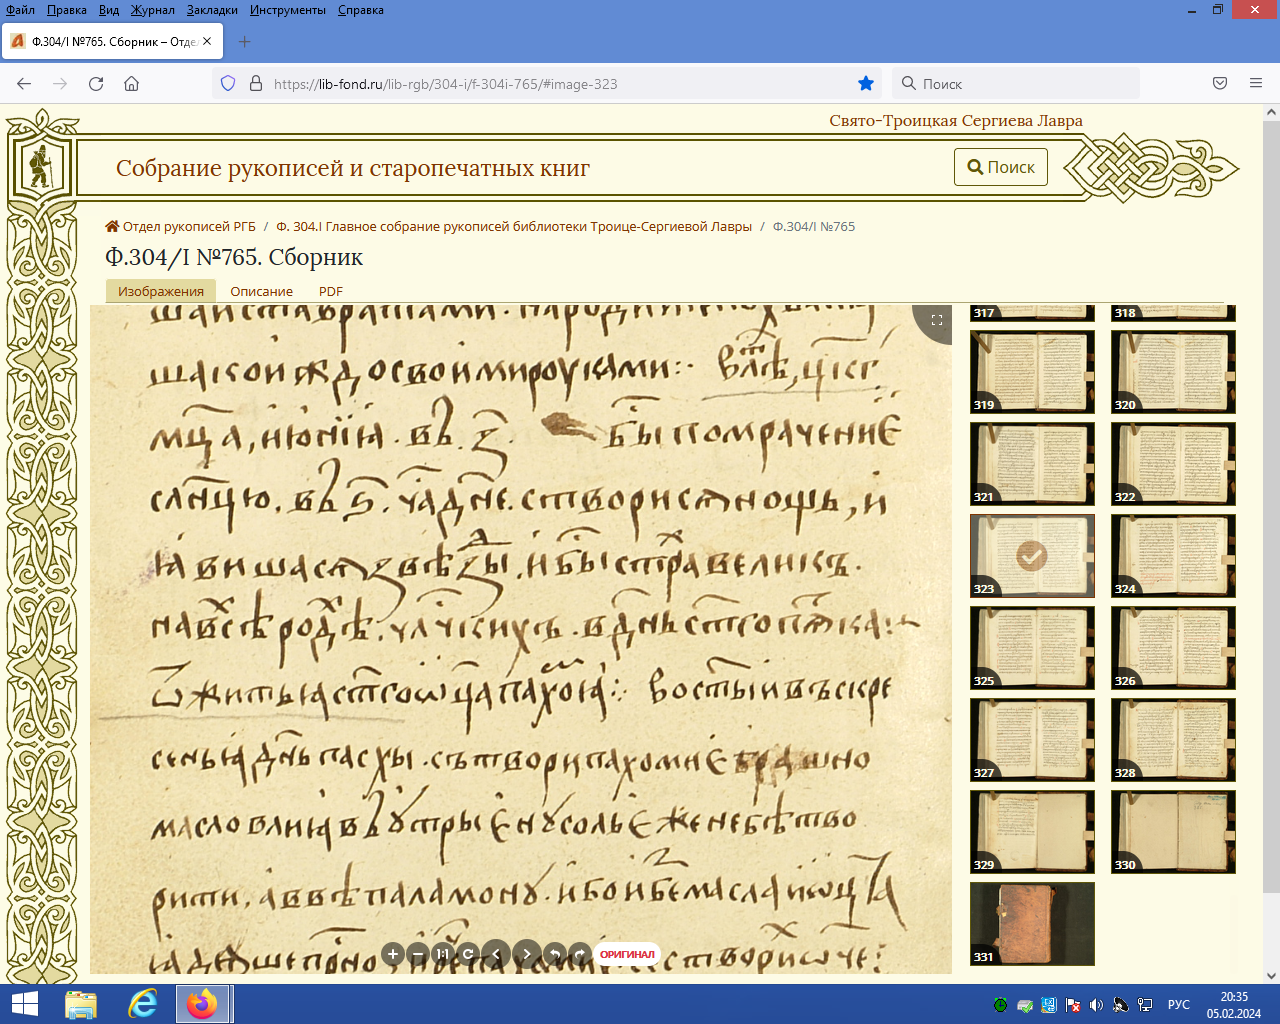 Файл Правка Вид Журнал Закладки Инструменты Справка
Ф.304/I №765. Сборник – Отде
https://lib-fond.ru/lib-rgb/304-i/f-304i-765/#image-323
Поиск
Свято-Троицкая Сергиева Лавра
Собрание рукописей и старопечатных книг
Поиск
Отдел рукописей РГБ / Ф. 304.I Главное собрание рукописей библиотеки Троице-Сергиевой Лавры / Ф.304/I №765
Ф.304/I №765. Сборник
Изображения Описание PDF
шаꙗкоиждосвоимироуками:·
мцⷭ҇а, июнїꙗ · въ · з҃ · бⷭ҇ыпомрачениѥ
слн҃цю · въ ѕ҃ · чаⷭ҇дн҃е · створисѧнощь, и
ꙗвишасѧзвѣзⷣы · ибⷭ҇ыстраⷯвеликъ ·
навсѣⷯродⷯѣ · члч҃кихъ · вдн҃ь
ѿжитьꙗст҃гоѡц҃апахоⷨꙗ:· востыивъскре
сеньꙗдн҃ьпасхы · сътворипахомиѥ
масловлиꙗвъꙋтрыѥнꙋсольѥженебѣтво
рити, аввѣпаламонꙋ · ибоибемасла
317 318
319 320
321 322
323 324
325 326
327 328
329 330
331
1:1
ОРИГИНАЛ
РУС
20:35
05.02.2024